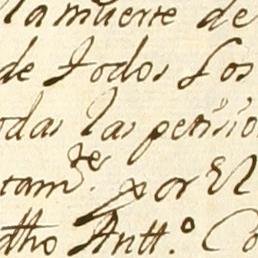 la muerte de
de todos los
odas las petisio
tam.te por El
dho Antt.º Co